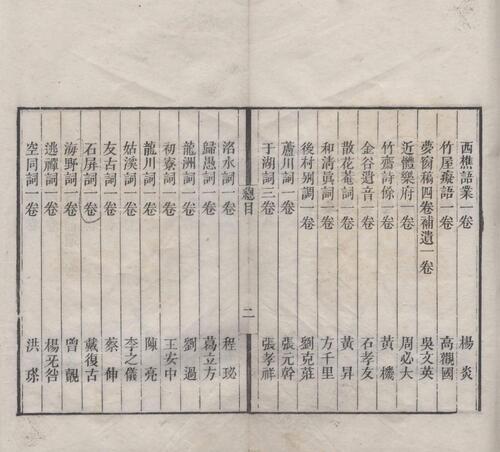 西樵語業一卷 楊炎
竹屋癡語一卷 高觀國
夢窗稿四卷補遺一卷 吳文英
近體樂府一卷 周必大
竹齋詩餘一卷 黃機
金谷遺音一卷 石孝友
散花菴詞一卷 黃昇
和清真詞一卷 方千里
後村别調一卷 劉克莊
蘆川詞一卷 張元幹
于湖詞三卷 張孝祥
總目 二
洺水詞一卷 程珌
歸愚詞一卷 葛立方
龍洲詞一卷 劉過
初寮詞一卷 王安中
龍川詞一卷 陳亮
姑溪詞一卷 李之儀
友古詞一卷 蔡伸
石屏詞一卷 戴復古
海野詞一卷 曾覿
逃禪詞一卷 楊无咎
空同詞一卷 洪瑹